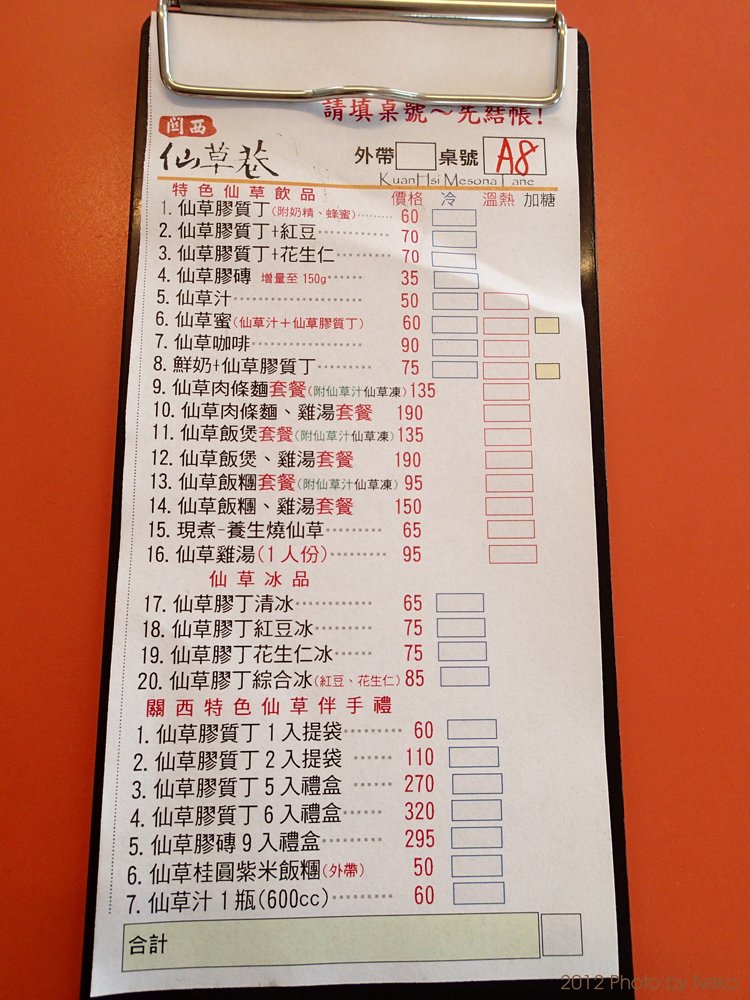 請填桌號～先結帳!
関西
仙草巷
外帶 桌號 A8
KuanHsi Mesona Lane
特色仙草飲品 價格 冷 溫熱 加糖
1. 仙草膠質丁(附奶精、蜂蜜)········ 60
2. 仙草膠質丁+紅豆············ 70
3. 仙草膠質丁+花生仁·········· 70
4. 仙草膠磚 增量至 150g······ 35
5. 仙草汁····················· 50
6. 仙草蜜(仙草汁＋仙草膠質丁) 60
7. 仙草咖啡·················· 90
8. 鮮奶+仙草膠質丁········· 75
9. 仙草肉條麵套餐(附仙草汁仙草凍) 135
10. 仙草肉條麵、雞湯套餐 190
11. 仙草飯煲套餐(附仙草汁仙草凍) 135
12. 仙草飯煲、雞湯套餐 190
13. 仙草飯糰套餐(附仙草汁仙草凍) 95
14. 仙草飯糰、雞湯套餐 150
15. 現煮-養生燒仙草········· 65
16. 仙草雞湯(1人份)········· 95
仙草冰品
17. 仙草膠丁清冰············ 65
18. 仙草膠丁紅豆冰········· 75
19. 仙草膠丁花生仁冰······ 75
20. 仙草膠丁綜合冰(紅豆、花生仁) 85
關西特色仙草伴手禮
1. 仙草膠質丁1入提袋········· 60
2. 仙草膠質丁2入提袋 ······ 110
3. 仙草膠質丁5入禮盒 ······ 270
4. 仙草膠質丁6入禮盒······ 320
5. 仙草膠磚9入禮盒········· 295
6. 仙草桂圓紫米飯糰(外帶) 50
7. 仙草汁1瓶(600cc)·········· 60
合計
2012 Photo by Neko